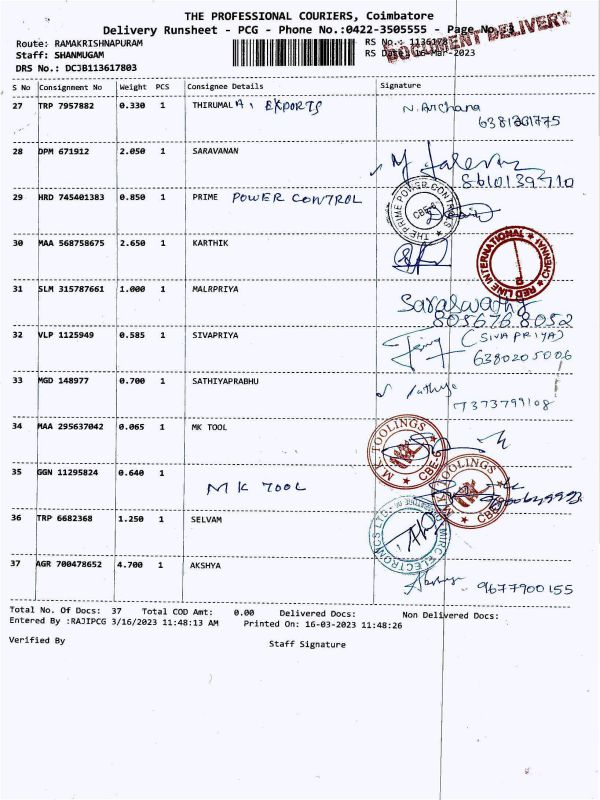 THE PROFESSIONAL COURIERS, Coimbatore
Delivery Runsheet - PCG - Phone No.:0422-3505555 - Page No.:3
DOCUMENT DELIVERY
Route: RAMAKRISHNAPURAM
RS No.: 1136178
Staff: SHANMUGAM
RS Date: 16-Mar-2023
DRS No.: DCJB113617803
S No Consignment No Weight PCS Consignee Details Signature
27 TRP 7957882 0.330 1 THIRUMALA, EXPORTS N. Archana
28 DPM 671912 2.050 1 SARAVANAN
8610139210
29 HRD 745401383 0.850 1 PRIME POWER CONTROL
THE PRIME POWER CONTROLS
CBE-6
30 MAA 568758675 2.650 1 KARTHIK
RED LINE INTERNATIONAL CHENNAI
31 SLM 315787661 1.000 1 MALRPRIYA
Saraswathy
8056768052
32 VLP 1125949 0.585 1 SIVAPRIYA
(SIVAPRIYA)
6380205006
33 MGD 148977 0.700 1 SATHIYAPRABHU
Sathya
7373799108
34 MAA 295637042 0.065 1 MK TOOL
M.K TOOLINGS CBE-6
35 GGN 11295824 0.640 1
MK TOOL
M.K TOOLINGS CBE-6
36 TRP 6682368 1.250 1 SELVAM
MIRC ELECTRONICS LTD.
37 AGR 700478652 4.700 1 AKSHYA
Akshya 9677900155
Total No. Of Docs: 37 Total COD Amt: 0.00 Delivered Docs: Non Delivered Docs:
Entered By :RAJIPCG 3/16/2023 11:48:13 AM Printed On: 16-03-2023 11:48:26
Verified By Staff Signature